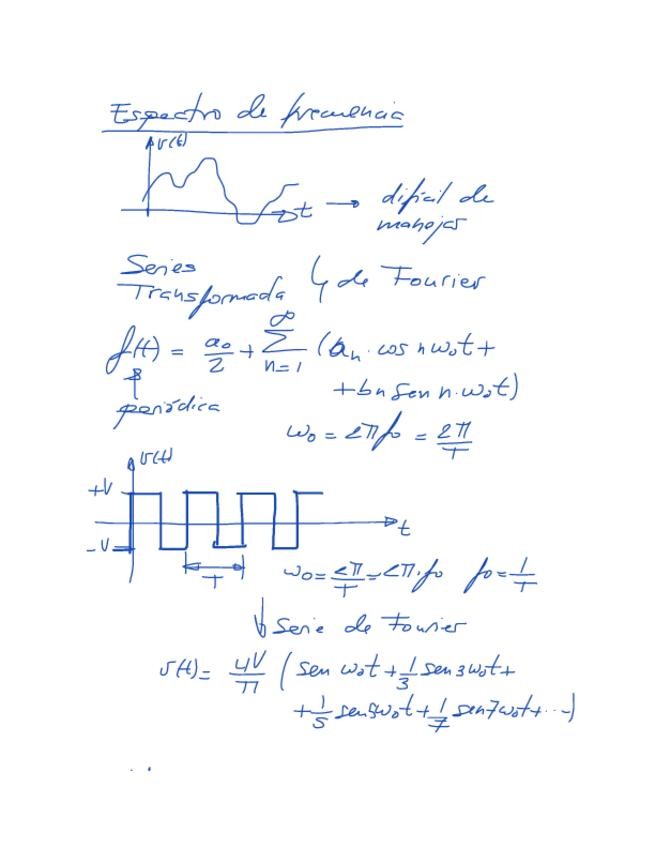 Espectro de frecuencia
v(t)
t → difícil de
manejar
Series
Transformada } de Fourier
f(t) = a₀/2 + ∑ n=1 ∞ (aₙ · cos n ω₀t +
+ bn sen n · ω₀t)
periódica
ω₀ = 2πf₀ = 2π/T
v(t)
+V
t
-V
T
ω₀ = 2π/T = 2π·f₀ f₀ = 1/T
↓ Serie de Fourier
v(t) = 4V/π ( sen ω₀t + 1/3 sen 3ω₀t +
+ 1/5 sen 5ω₀t + 1/7 sen 7ω₀t + ...)